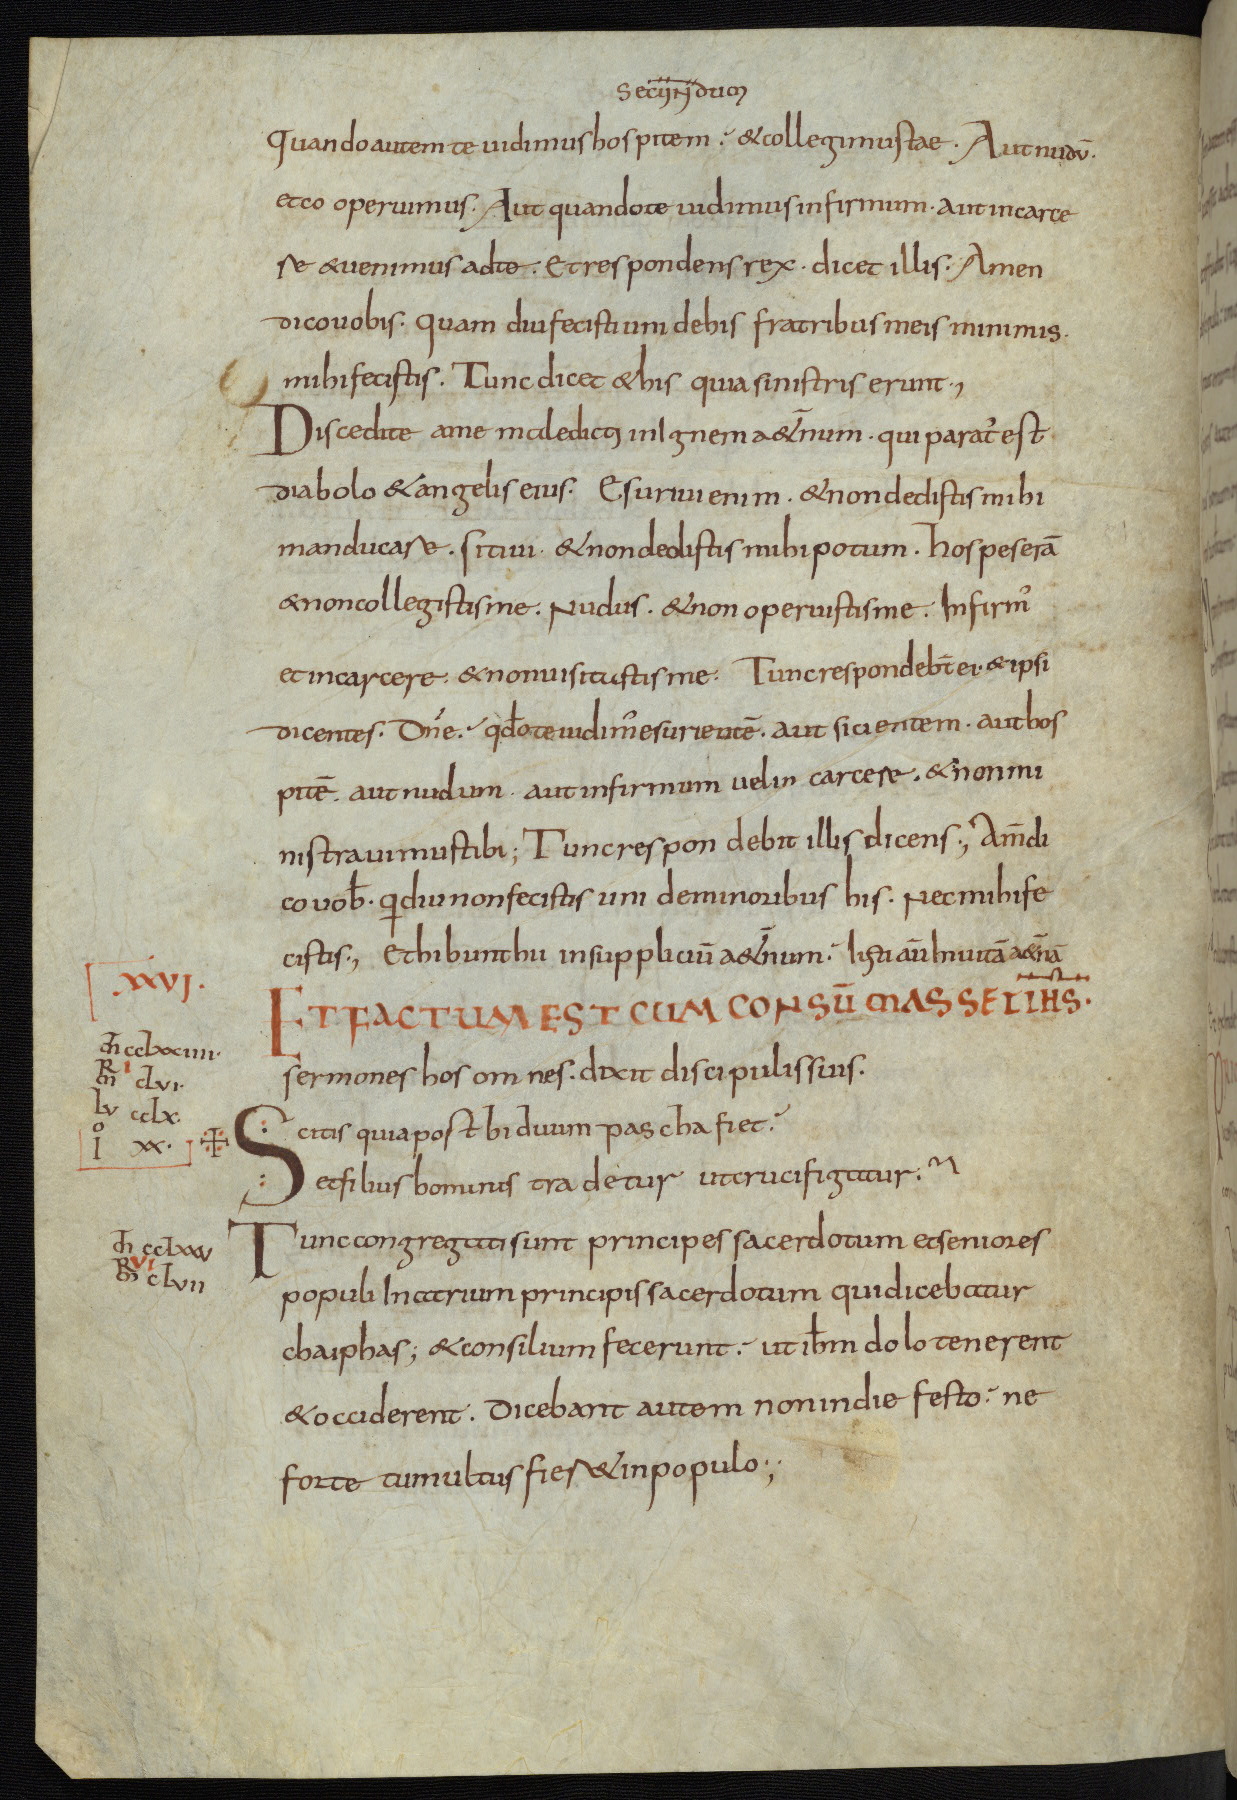 Secundum
Quando autem te uidimus hospitem · & collegimus tae · Aut nudū ·
et co operuimus · Aut quando te uidimus infirmum · aut in carce
re & uenimus ad te · Et respondens rex · dicet illis · Amen
dico uobis · quam diu fecisti uni de his fratribus meis minimis ·
mihi fecistis · Tunc dicet & his qui a sinistris erunt ·,
Discedite a me maledicti in Ignem a&̄rnum · qui parat' est
diabolo & angelis eius · Esuriui enim · & non dedistis mihi
manducare · sitiui · & non dedistis mihi potum · hospes erā
& non collegistis me · Nudus · & non operuistis me · Infirm'
et in carcere · & non uisitastis me · Tunc respondebt̄ ei · & ipsi
dicentes · Dn̄e · qđo te uidim' esurientē · aut sicientem · aut hos
pitē · aut nudum · aut infirmum uel in carcere · & non mi
nistrauimus tibi ; Tunc respondebit illis dicens ·, Am̄ di
co uob̄ · q̄diu non fecistis uni de minoribus his · Nec mihi fe
cistis ·, Et hibunt hii in suppliciū a&̄rnum · Iusti aū In uitā a&̄nā
XXVI ·
ET FACTUM EST CUM CONSŪMASSET IHS̄ ·
sermones hos omnes · dixit discipulis suis ·
m̄ cclxxiiii ·
R I
m̄ clvi ·
lv cclx ·
io xx ·
Scitis quia post biduum pascha fiet ·
et filius hominis tradetur ut crucifigatur ·
m̄ cclxxv
R VI
m̄ clvii
Tunc congregati sunt principes sacerdotum et seniores
populi In atrium principis sacerdotum qui dicebatur
chaiphas ; & consilium fecerunt · ut ihm̄ dolo tenerent
& occiderent · Dicebant autem non in die festo · ne
forte tumultus fier& in populo ;